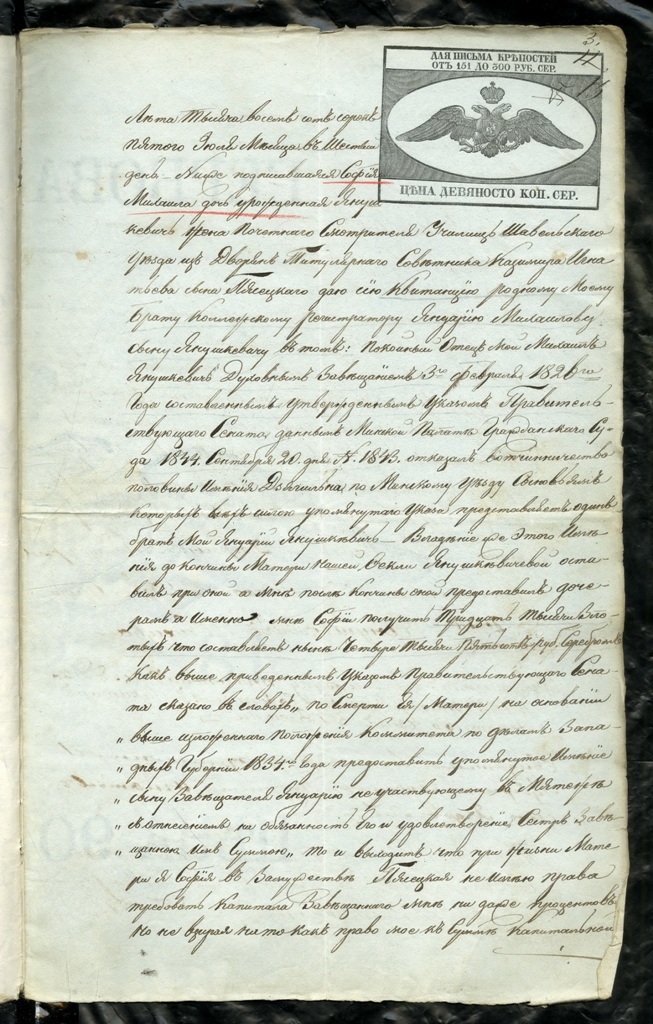 3.
4
11
ДЛЯ ПИСЬМА КРѢПОСТЕЙ
ОТЪ 151 ДО 300 РУБ. СЕР.
ЦѢНА ДЕВЯНОСТО КОП. СЕР.
Лѣта Тысяча восемь сотъ сорокъ
пятого Іюля Мѣсяца въ Шестый
день – Ниже подписавшаяся Софія
Михаила дочь урожденная Януш-
кевичь жена Почетнаго Смотрителя Училищъ Шавельскаго
Уѣзда изъ Дворянъ Титулярнаго Совѣтника Казимира Игна-
тьева сына Пясецкаго даю сію Квитанцію родному Моему
Брату Коллежскому Регистратору Януарію Михайлову
сыну Янушкевичу въ томъ: Покойный Отецъ Мой Михаилъ
Янушкевичъ Духовнымъ Завѣщаніемъ 3го Февраля 1826 го
Года составленнымъ утвержденнымъ Указомъ Правитель-
ствующаго Сената, даннымъ Минской Палатѣ Гражданскаго Су-
да 1844 Сентября 20 дня N. 1843. отказалъ вотчинничество
половины Имѣнія Дзягильна, по Минскому Уѣзду Сыновьямъ
которыхъ силою упомянутаго Указа представляетъ одинъ
братъ Мой Януарій Янушкевичъ – Владѣніе же этого Имѣ-
нія до Кончины Матери нашей Феклы Янушкевичевой оста-
вилъ при оной а мнѣ послѣ Кончины оной предоставилъ доче-
рямъ а Именно мнѣ Софіи получить Тридцать Тысячи Зло-
тыхъ что составляетъ нынѣ Четыре тысячи пятьсотъ руб. Серебромъ
Какъ выше приведеннымъ Указомъ Правительствующаго Сена-
та сказано въ словахъ „ по Смерти Ея /Матери/ на основаніи
„ выше изложеннаго Положенія Комитета по дѣламъ Запа-
„ дныхъ Губерній 1834 го Года предоставить упомянутое Имѣніе
„ сыну Завѣщателя Януарію не участвующему въ Мятежѣ
„ съ отнесеніемъ на обязанность Его и удовлетвореніе Сестръ Завѣ-
„ щанною имъ Суммою „ то и выходитъ что при жизни Мате-
ри я Софія въ Замужествѣ Пясецкая не имѣю права
требовать Капитала Завѣщаннаго мнѣ ни даже процентовъ
Но не взирая на то какъ право мое къ Суммѣ Капитальной